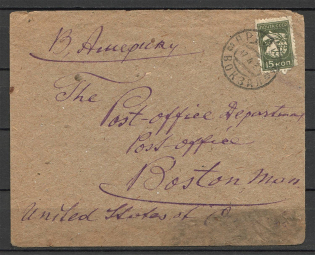 В Америку
15 КОП
The
Post-office Departmen
Post-office
Boston Man
United States of